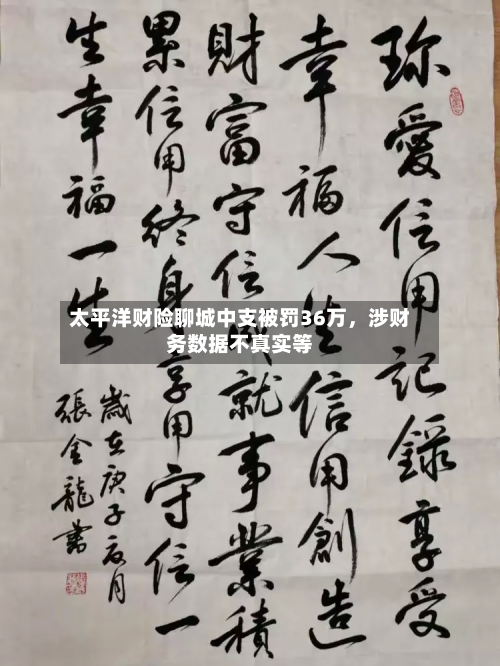 珎愛信用記錄享受
幸福人生信用創造
財富守信成就事業積
累信用終身享用守信一
生幸福一生
歲在庚子夏月
張金龍書
太平洋财险聊城中支被罚36万，涉财
务数据不真实等